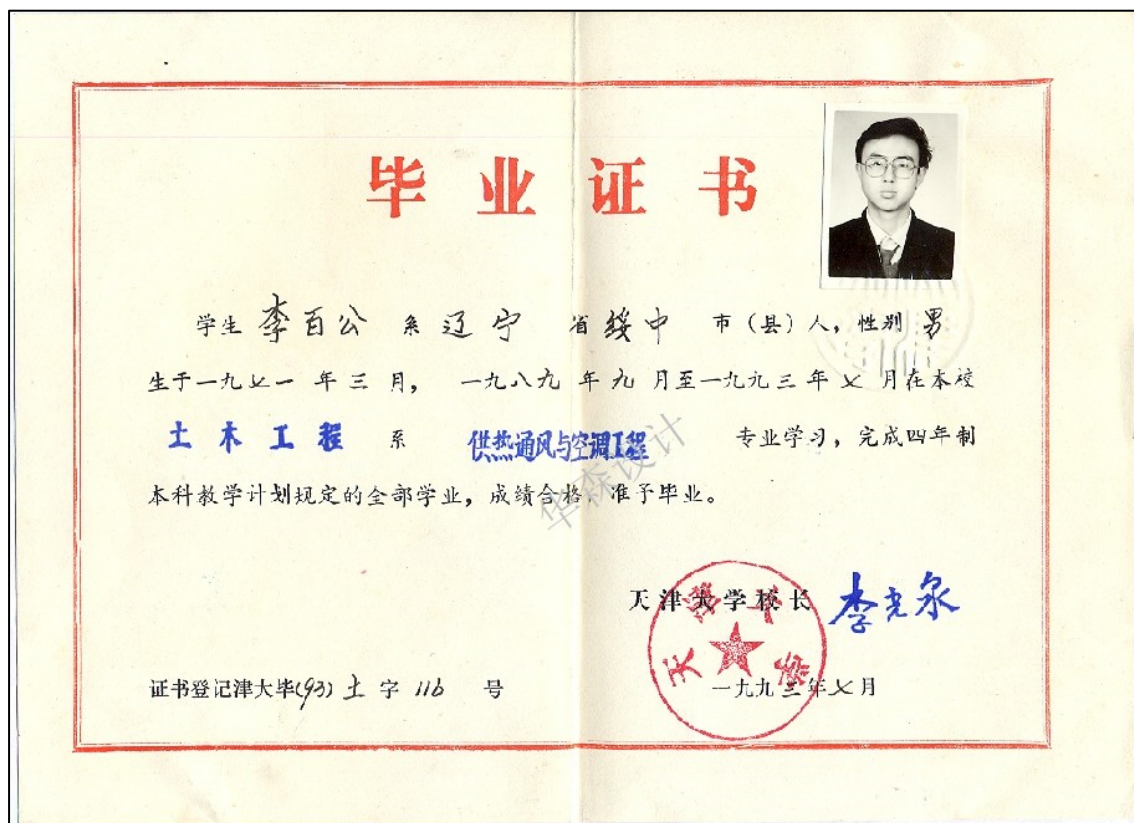 毕业证书
学生李百公系辽宁省绥中市（县）人，性别男
生于一九七一年三月，一九八九年九月至一九九三年七月在本校
土木工程系供热通风与空调工程专业学习，完成四年制
本科教学计划规定的全部学业，成绩合格，准予毕业。
华森设计
天津大学校长 李光泉
天津大学
证书登记津大毕(93)土字116号
一九九三年七月